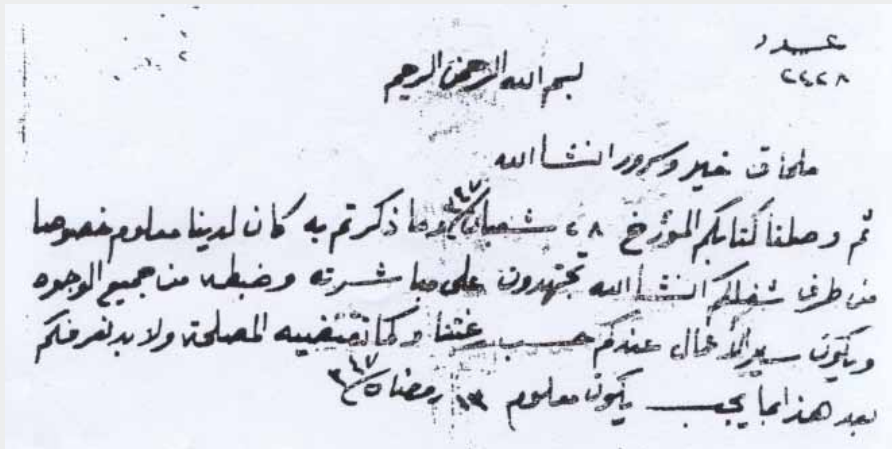 عدد
٢٤٢٨
بسم الله الرحمن الرحيم
ملحاق خير وسرور انشاالله
ثم وصلنا كتابكم المؤرخ ٢٨ شعبان ٣٤٧ وما ذكرتم به كان لدينا معلوم خصوصا
من طرف شغلكم انشاالله تجتهدون على مباشرته وضبطه من جميع الوجوه
ويكون سير الأعمال عندكم حسب رغبتنا وكما تقتضيه المصلحة ولا بد نعرفكم
بعد هذا بما يجب يكون معلوم ١٣ رمضان ٣٤٧